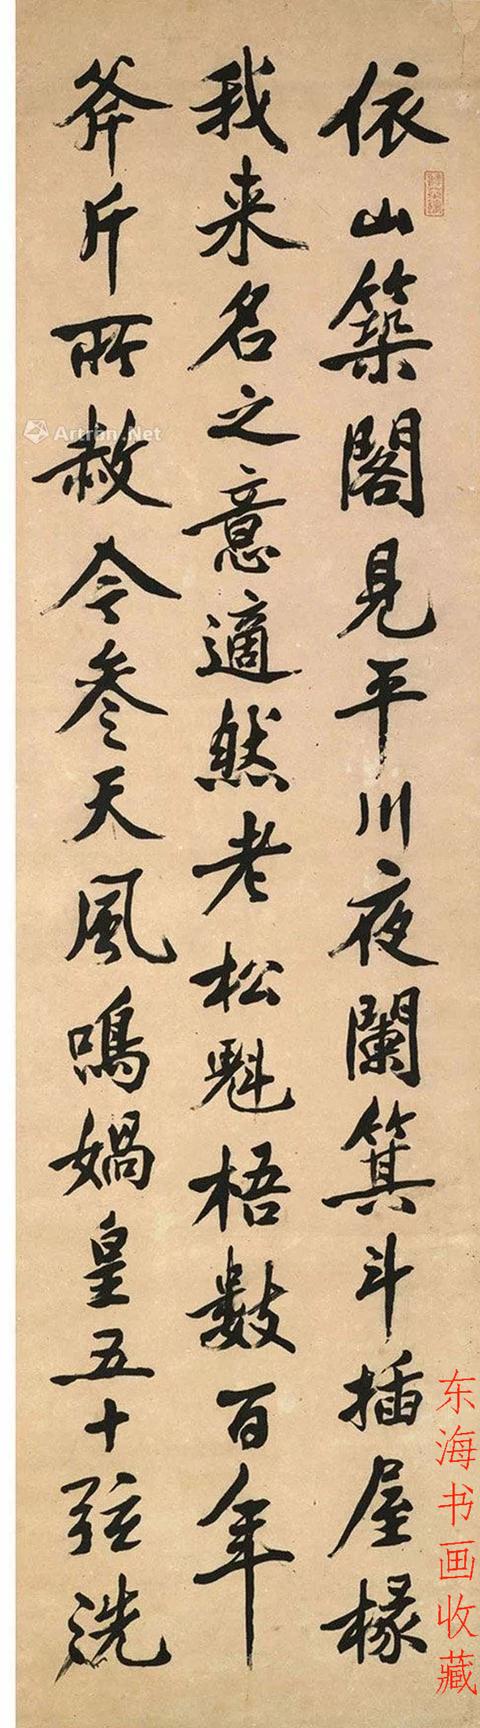 依山築閣見平川夜闌箕斗插屋椽
我来名之意適然老松魁梧數百年
斧斤所赦令参天風鳴媧皇五十弦洗
东海书画收藏
Artron.Net